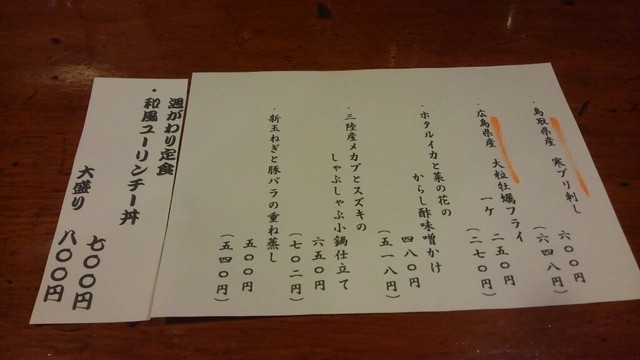 ・鳥取県産　寒ブリ刺し
六〇〇円
（六四八円）
・広島県産　大粒牡蠣フライ
一ケ　二五〇円
（二七〇円）
・ホタルイカと菜の花の
からし酢味噌かけ
四八〇円
（五一八円）
・三陸産メカブとスズキの
しゃぶしゃぶ小鍋仕立て
六五〇円
（七〇二円）
・新玉ねぎと豚バラの重ね蒸し
五〇〇円
（五四〇円）
週がわり定食
・和風ユーリンチー丼
七〇〇円
大盛り　八〇〇円